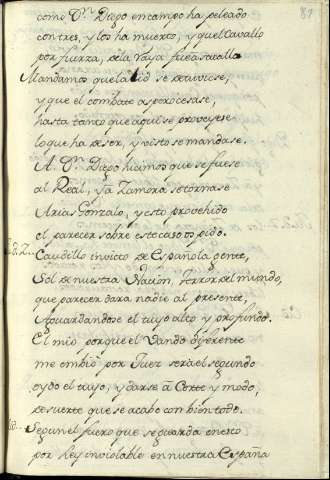 87
como Dn. Diego en campo ha peleado
con tres, y los ha muerto, y que el Cavallo
por fuerza, de la Raya fue a sacallo
Mandamos que la lid se detuviese,
y que el combate asi parocesase,
hasta tanto que aqui se proveyese
lo que ha de ser, y visto se mandase.
A Dn. Diego hicimos que se fuese
al Real, y a Zamora se tornase
Arias Gonzalo, y esto provehido
el parecer sobre este caso os pido.
Caudillo invicto de Española gente,
Sol de nuestra Nacion, terror del mundo,
que parecer dara nadie al presente,
Aguardandose el tuyo alto y profundo.
El mio porque el Vando diferente
me embió por Juez será el segundo
oydo el tuyo, y darse a Corte y modo,
de suerte que se acabe con bien todo.
Segun el fuero que se guarda en esto
por ley inviolable en nuestra España